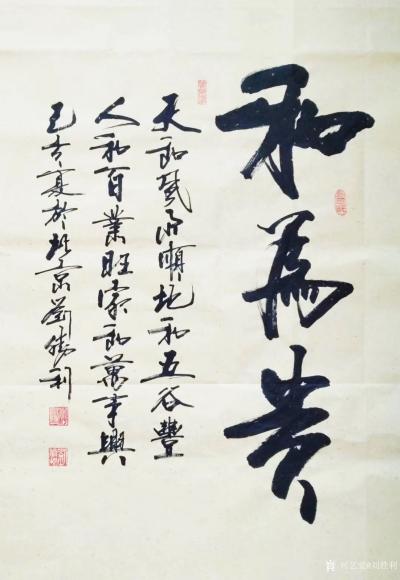 和為贵
天和風雨順地和五谷豐
人和百業旺家和萬事興
己亥夏於北京劉勝利